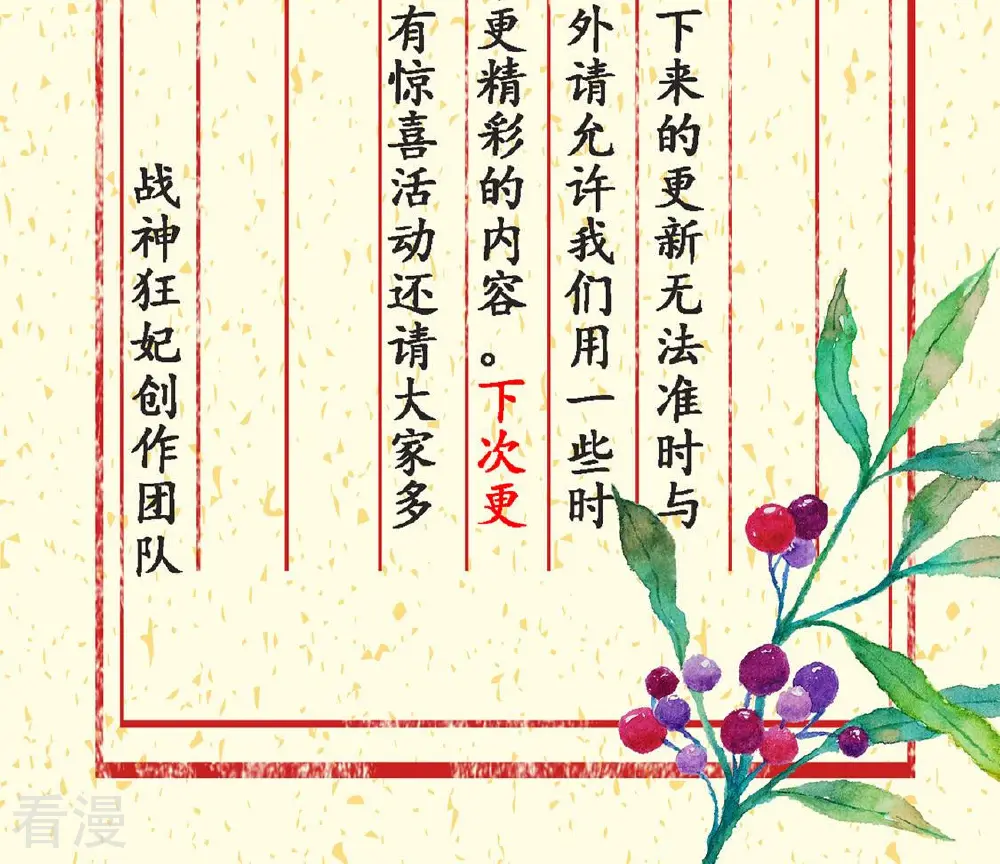 下来的更新无法准时与
外请允许我们用一些时
更精彩的内容。下次更
有惊喜活动还请大家多
战神狂妃创作团队
看漫